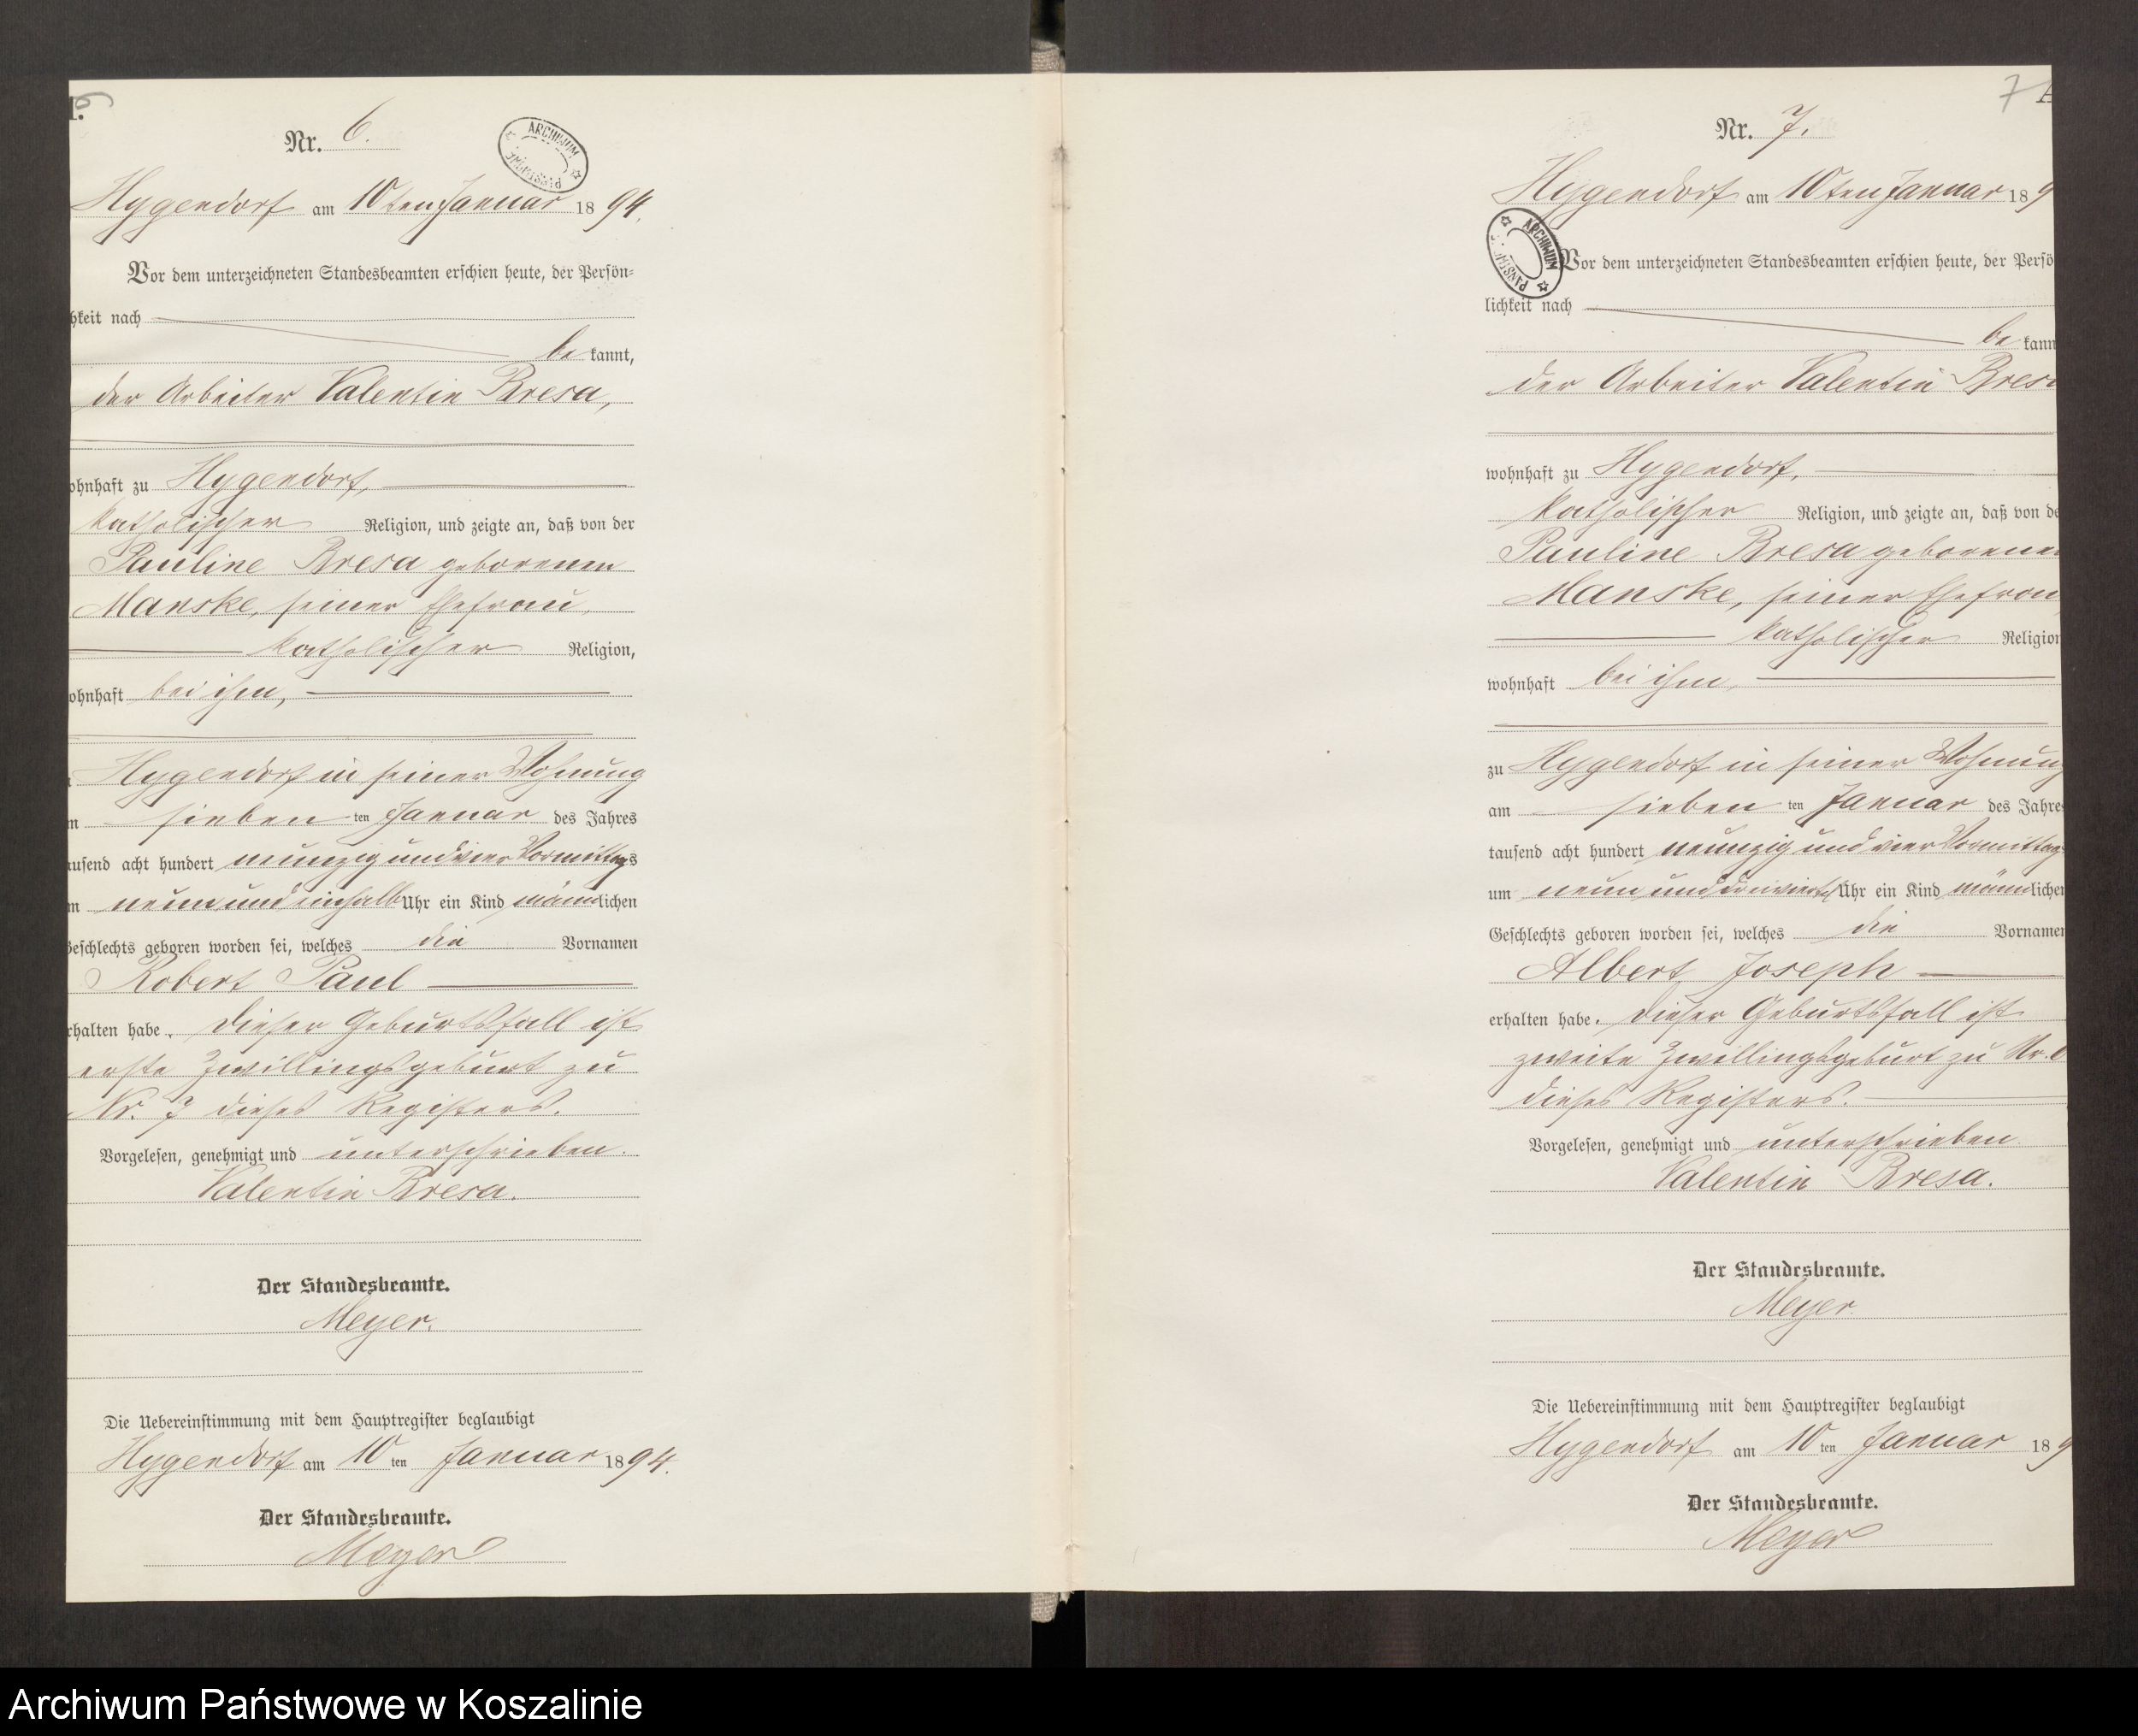 6
Nr. 6.
ARCHIWUM PAŃSTWOWE
Hygendorf am 10ten Januar 1894.
Vor dem unterzeichneten Standesbeamten erschien heute, der Persön-
hkeit nach
be kannt,
der Arbeiter Valentin Bresa,
ohnhaft zu Hygendorf,
katholischer Religion, und zeigte an, daß von der
Pauline Bresa geborenen
Manske, seiner Ehefrau,
katholischer Religion,
ohnhaft bei ihm,
Hygendorf in seiner Wohnung
m sieben ten Januar des Jahres
ausend acht hundert neunzig und vier Vormittags
m neun und einhalb Uhr ein Kind männlichen
Geschlechts geboren worden sei, welches die Vornamen
Robert Paul
rhalten habe. Dieser Geburtsfall ist
erste Zwillingsgeburt zu
Nr. 7 dieses Registers.
Vorgelesen, genehmigt und unterschrieben.
Valentin Bresa.
Der Standesbeamte.
Meyer.
Die Uebereinstimmung mit dem Hauptregister beglaubigt
Hygendorf am 10 ten Januar 1894.
Der Standesbeamte.
Meyer
7
Nr. 7.
Hygendorf am 10ten Januar 189
ARCHIWUM PAŃSTW
Vor dem unterzeichneten Standesbeamten erschien heute, der Persö
lichkeit nach
be kann
der Arbeiter Valentin Bresa
wohnhaft zu Hygendorf,
katholischer Religion, und zeigte an, daß von de
Pauline Bresa geborenen
Manske, seiner Ehefrau
katholischer Religion
wohnhaft bei ihm,
zu Hygendorf in seiner Wohnung
am sieben ten Januar des Jahres
tausend acht hundert neunzig und vier Vormittag
um neun und dreiviertel Uhr ein Kind männlichen
Geschlechts geboren worden sei, welches die Vornamen
Albert Joseph
erhalten habe. Dieser Geburtsfall ist
zweite Zwillingsgeburt zu Nr. 6
dieses Registers.
Vorgelesen, genehmigt und unterschrieben.
Valentin Bresa.
Der Standesbeamte.
Meyer.
Die Uebereinstimmung mit dem Hauptregister beglaubigt
Hygendorf am 10 ten Januar 189
Der Standesbeamte.
Meyer
Archiwum Państwowe w Koszalinie